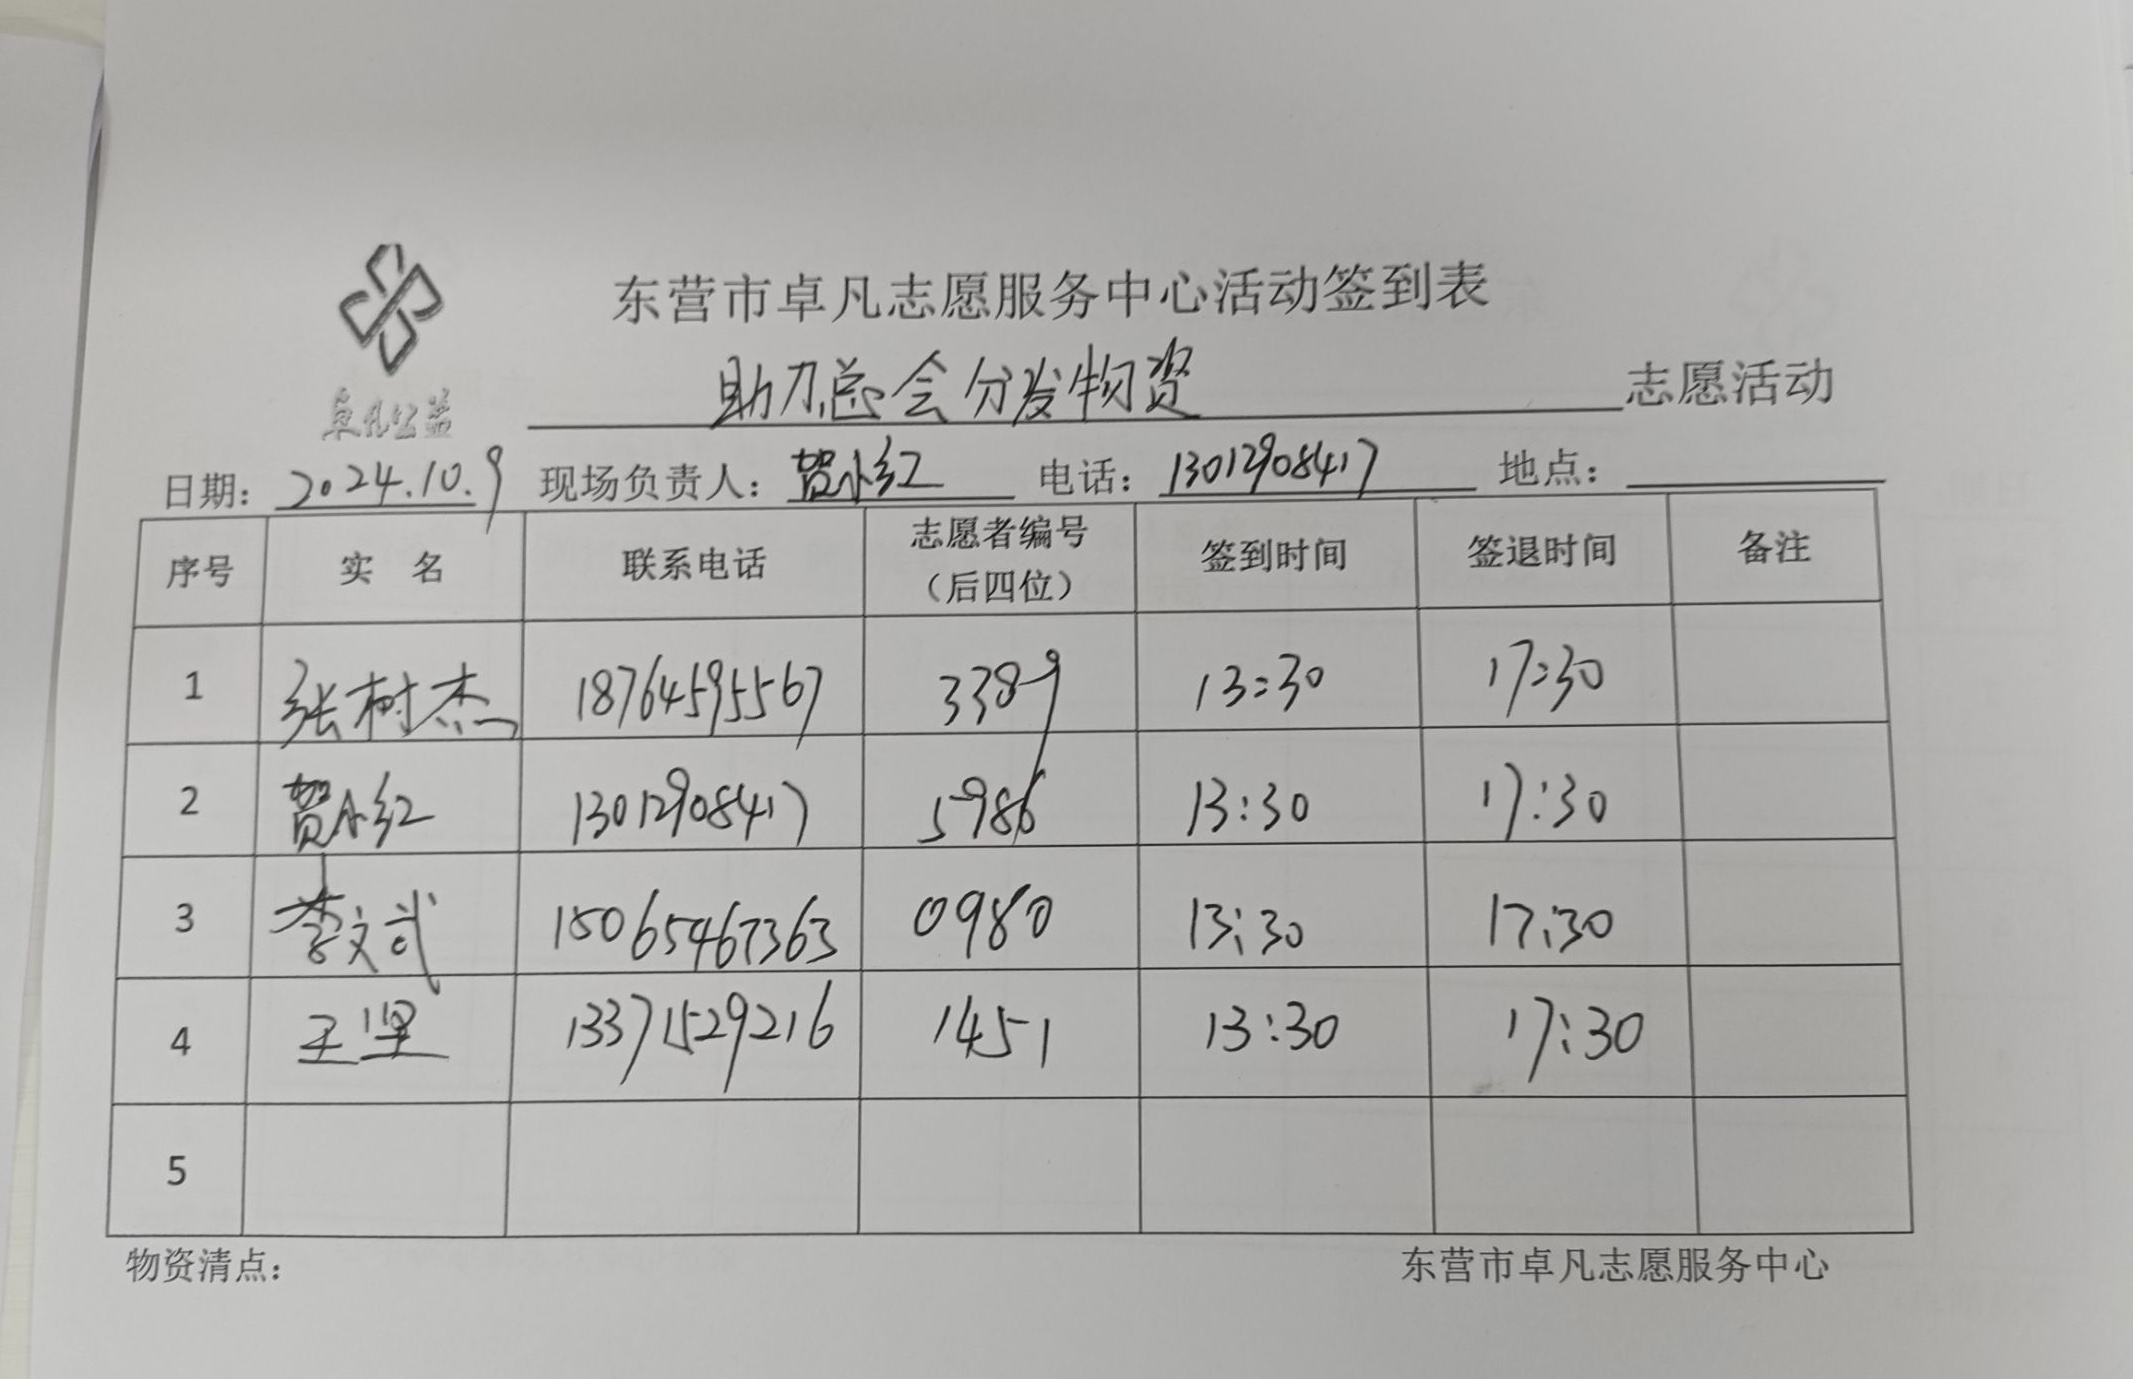 东营市卓凡志愿服务中心活动签到表
卓凡公益
助力总会分发物资 志愿活动
日期：2024.10.9 现场负责人：贺小红 电话：13012908417 地点：
序号 实 名 联系电话 志愿者编号（后四位） 签到时间 签退时间 备注
1 张树杰 18764595567 3389 13:30 17:30
2 贺小红 13012908417 5986 13:30 17:30
3 李文武 15065467363 0980 13:30 17:30
4 王坚 13371529216 1451 13:30 17:30
5
物资清点： 东营市卓凡志愿服务中心